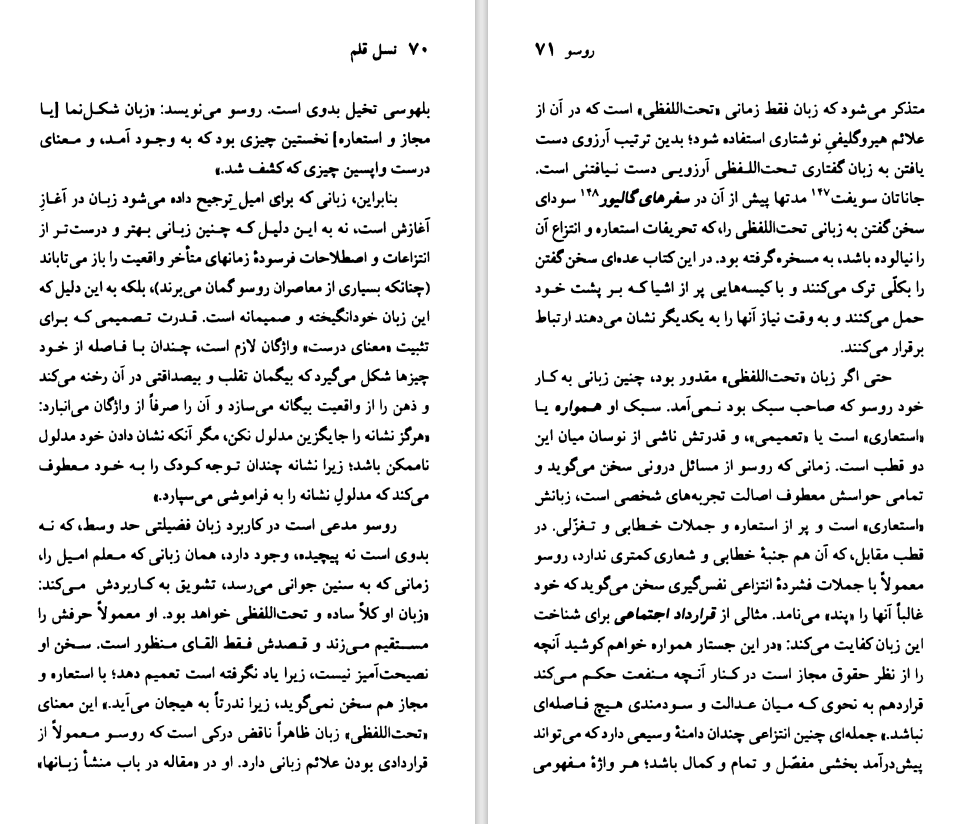 ۷۰ نسل قلم
بلهوسی تخیل بدوی است. روسو می‌نویسد: «زبان شکل‌نما [یـا
مجاز و استعاره] نخستین چیزی بود که به وجود آمـد، و معنای
درست واپسین چیزی که کشف شد.»
بنابراین، زبانی که برای امیل ترجیح داده می‌شود زبان در آغازِ
آغازش است، نه به این دلیل که چنین زبانی بهتر و درست‌تر از
انتزاعات و اصطلاحات فرسودهٔ زمانهای متأخر واقعیت را باز می‌تاباند
(چنانکه بسیاری از معاصران روسو گمان می‌برند)، بلکه به این دلیل که
این زبان خودانگیخته و صمیمانه است. قدرت تصمیمی که برای
تثبیت «معنای درست» واژگان لازم است، چندان با فاصله از خود
چیزها شکل می‌گیرد که بیگمان تقلب و بیصداقتی در آن رخنه می‌کند
و ذهن را از واقعیت بیگانه می‌سازد و آن را صرفاً از واژگان می‌انبارد:
«هرگز نشانه را جایگزین مدلول نکن، مگر آنکه نشان دادن خود مدلول
ناممکن باشد؛ زیرا نشانه چندان توجه کودک را به خود معطوف
می‌کند که مدلولِ نشانه را به فراموشی می‌سپارد.»
روسو مدعی است در کاربرد زبان فضیلتی حد وسط، که نه
بدوی است نه پیچیده، وجود دارد، همان زبانی که معلم امیل را،
زمانی که به سنین جوانی می‌رسد، تشویق به کاربردش می‌کند:
«زبان او کلاً ساده و تحت‌اللفظی خواهد بود. او معمولاً حرفش را
مستقیم می‌زند و قصدش فقط القای منظور است. سخن او
نصیحت‌آمیز نیست، زیرا یاد نگرفته است تعمیم دهد؛ با استعاره و
مجاز هم سخن نمی‌گوید، زیرا ندرتاً به هیجان می‌آید.» این معنای
«تحت‌اللفظی» زبان ظاهراً ناقض درکی است که روسو معمولاً از
قراردادی بودن علائم زبانی دارد. او در «مقاله در باب منشأ زبانها»
روسو ۷۱
متذکر می‌شود که زبان فقط زمانی «تحت‌اللفظی» است که در آن از
علائم هیروگلیفیِ نوشتاری استفاده شود؛ بدین ترتیب آرزوی دست
یافتن به زبان گفتاری تحت‌اللفظی آرزویی دست نیافتنی است.
جاناتان سویفت۱۴۷ مدتها پیش از آن در سفرهای گالیور۱۴۸ سودای
سخن گفتن به زبانی تحت‌اللفظی را، که تحریفات استعاره و انتزاع آن
را نیالوده باشد، به مسخره گرفته بود. در این کتاب عده‌ای سخن گفتن
را بکلّی ترک می‌کنند و با کیسه‌هایی پر از اشیا که بر پشت خود
حمل می‌کنند و به وقت نیاز آنها را به یکدیگر نشان می‌دهند ارتباط
برقرار می‌کنند.
حتی اگر زبان «تحت‌اللفظی» مقدور بود، چنین زبانی به کار
خود روسو که صاحب سبک بود نمی‌آمد. سبک او همواره یا
«استعاری» است یا «تعمیمی»، و قدرتش ناشی از نوسان میان این
دو قطب است. زمانی که روسو از مسائل درونی سخن می‌گوید و
تمامی حواسش معطوف اصالت تجربه‌های شخصی است، زبانش
«استعاری» است و پر از استعاره و جملات خطابی و تغزّلی. در
قطب مقابل، که آن هم جنبهٔ خطابی و شعاری کمتری ندارد، روسو
معمولاً با جملات فشردهٔ انتزاعی نفس‌گیری سخن می‌گوید که خود
غالباً آنها را «پند» می‌نامد. مثالی از قرارداد اجتماعی برای شناخت
این زبان کفایت می‌کند: «در این جستار همواره خواهم کوشید آنچه
را از نظر حقوق مجاز است در کنار آنچه منفعت حکم می‌کند
قرار دهم به نحوی که میان عدالت و سودمندی هیچ فاصله‌ای
نباشد.» جمله‌ای چنین انتزاعی چندان دامنهٔ وسیعی دارد که می‌تواند
پیش‌درآمد بخشی مفصّل و تمام و کمال باشد؛ هر واژهٔ مفهومی